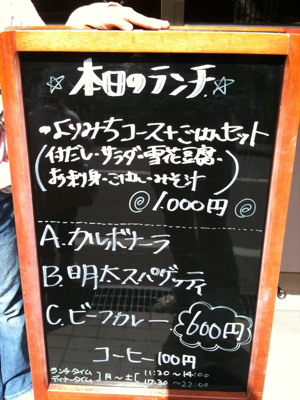 ☆本日のランチ☆
•よりみちコース+ごはんセット
(付だし・サラダ・雪花豆腐・
お刺身・ごはん・みそ汁)
1.000円
A.カルボナーラ
B.明太スパゲッティ
C.ビーフカレー 600円
コーヒー100円
ランチタイム
ディナータイム ]月〜土[ 11:30〜14:00
17:30〜22:00